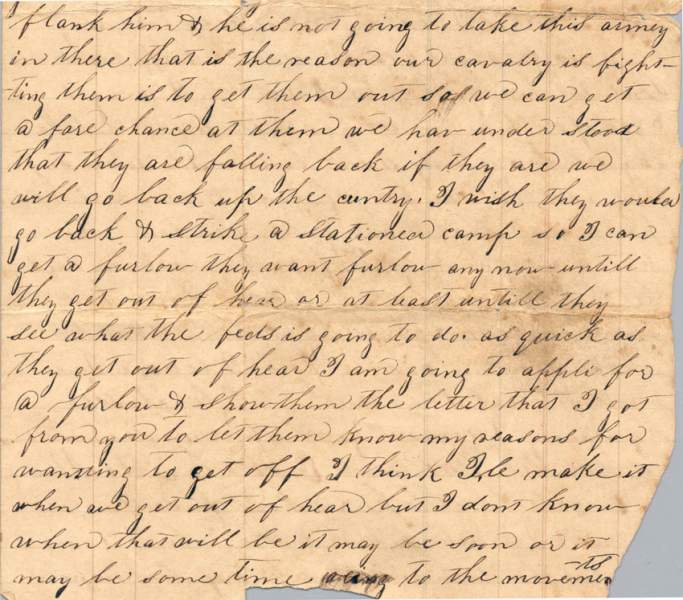 flank him & he is not going to take this armey
in there that is the reason our cavalry is figh-
ting them is to get them out so we can get
a fare chance at them we hav under stood
that they are falling back if they are we
will go back up the cuntry. I wish they would
go back & strike a stationed camp so I can
get a furlow they want furlow any now untill
they get out of hear or at least untill they
see what the feds is going to do. as quick as
they get out of hear I am going to appli for
a furlow & show them the letter that I got
from you to let them know my reasons for
wantting to get off I think Ile make it
when we get out of hear but I dont know
when that will be it may be soon or it
may be some time oing to the movements